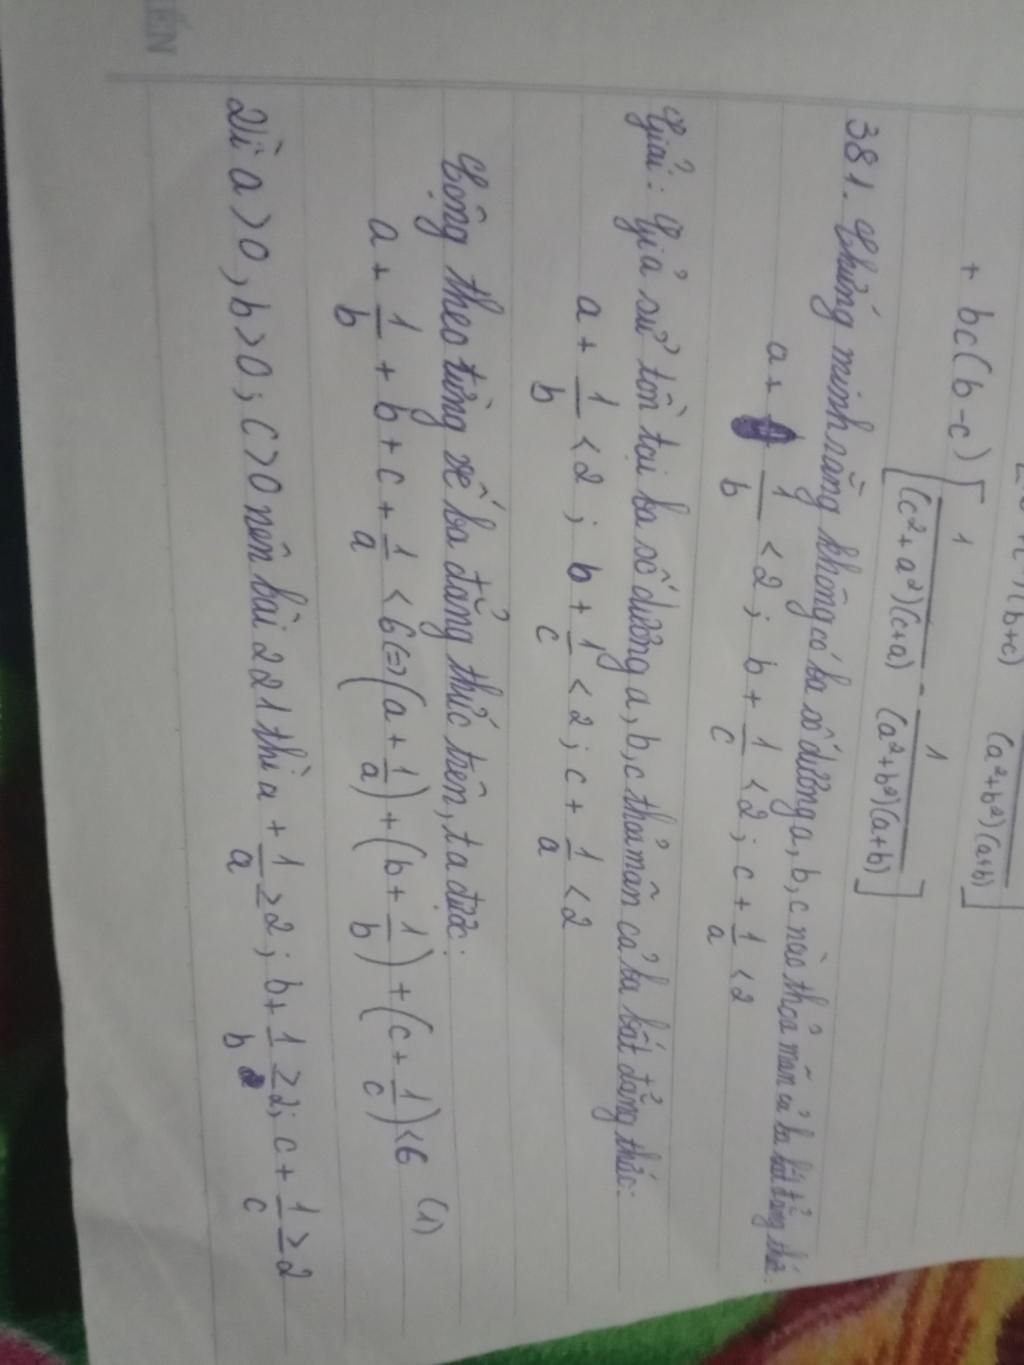 (b+c) (a²+b²)(a+b)]
+ bc(b-c) [1/((c²+a²)(c+a)) - 1/((a²+b²)(a+b))]
381. Chứng minh rằng không có ba số dương a, b, c nào thỏa mãn cả ba bất đẳng thức:
a + 1/b < 2; b + 1/c < 2; c + 1/a < 2
Giải: Giả sử tồn tại ba số dương a, b, c thỏa mãn cả ba bất đẳng thức:
a + 1/b < 2; b + 1/c < 2; c + 1/a < 2
Cộng theo từng xế ba đẳng thức trên, ta được:
a + 1/b + b + c + 1/a < 6 (=) (a + 1/a) + (b + 1/b) + (c + 1/c) < 6 (1)
Vì a > 0, b > 0; c > 0 nên bài 221 thì a + 1/a ≥ 2; b + 1/b ≥ 2; c + 1/c ≥ 2
ẾN